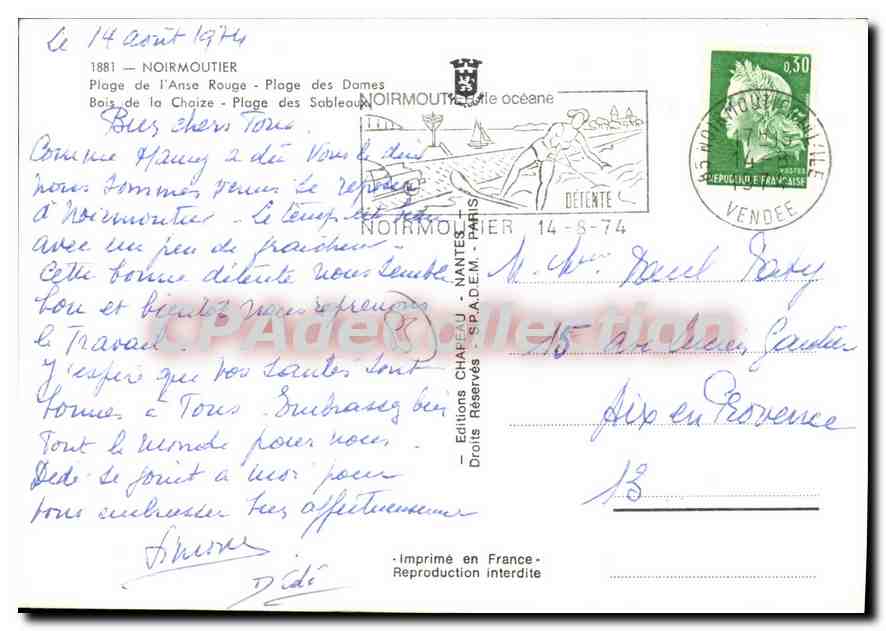 Le 14 août 1974
1881 — NOIRMOUTIER
Plage de l'Anse Rouge - Plage des Dames
Bois de la Chaize - Plage des Sableaux
NOIRMOUTIER île océane
DÉTENTE
NOIRMOUTIER 14-8-74
0,30
POSTES
REPUBLIQUE FRANÇAISE
85 NOIRMOUTIER EN L'ILE
VENDEE
Bien chers Tous
Comme Hamy a dû vous le dire
nous sommes venus se reposer
à Noirmoutier. Le temps est beau
avec un peu de fraicheur.
Cette bonne détente nous semble
bon et bientôt nous reprenons
le Travail.
J'espère que vos santés sont
bonnes à Tous. Embrassez bien
Tout le monde pour nous.
Dédé se joint à moi pour
vous embrasser bien affectueusement
Simone
Dédé
— Editions CHAPEAU - NANTES —
Droits Réservés - S.P.A.D.E.M. - PARIS
15 av Lucien Gautier
Aix en Provence
13
- Imprimé en France -
Reproduction interdite
CPAdeCollection